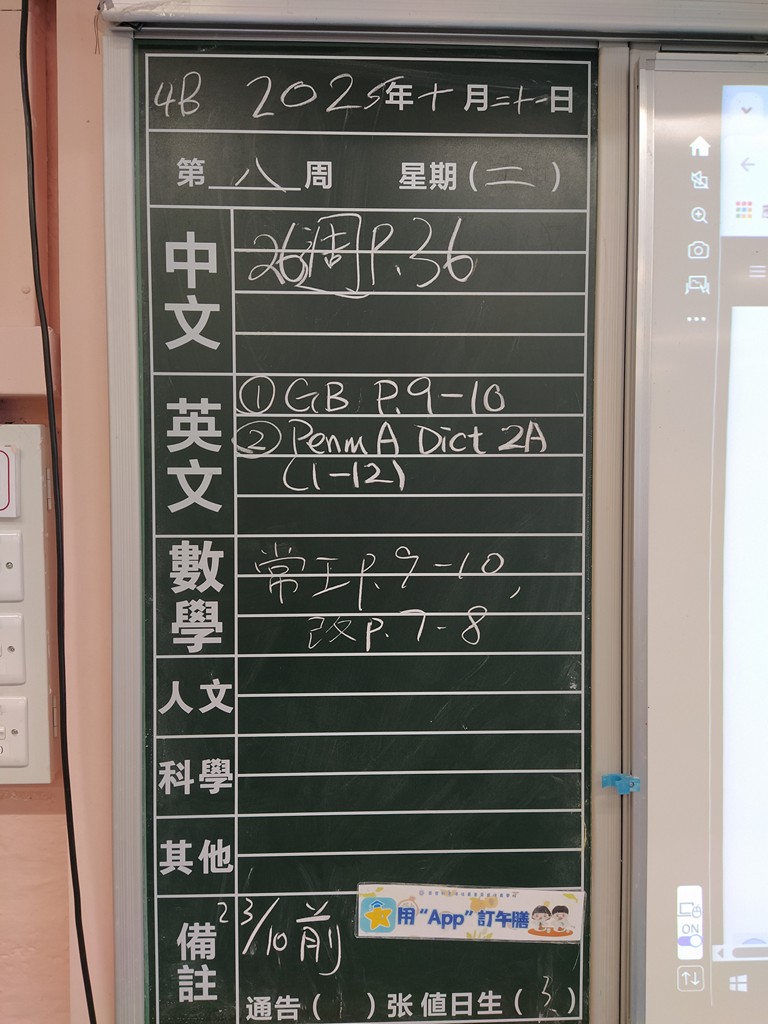 4B 2025年十月二十一日
第八周 星期(二)
中文
26週 P.36
英文
① GB P.9-10
② Penm A Dict 2A
(1-12)
數學
常工P.9-10,
改P.7-8
人文
科學
其他
備註
23/10前
用“App”訂午膳
通告( )张 值日生(3)
ON